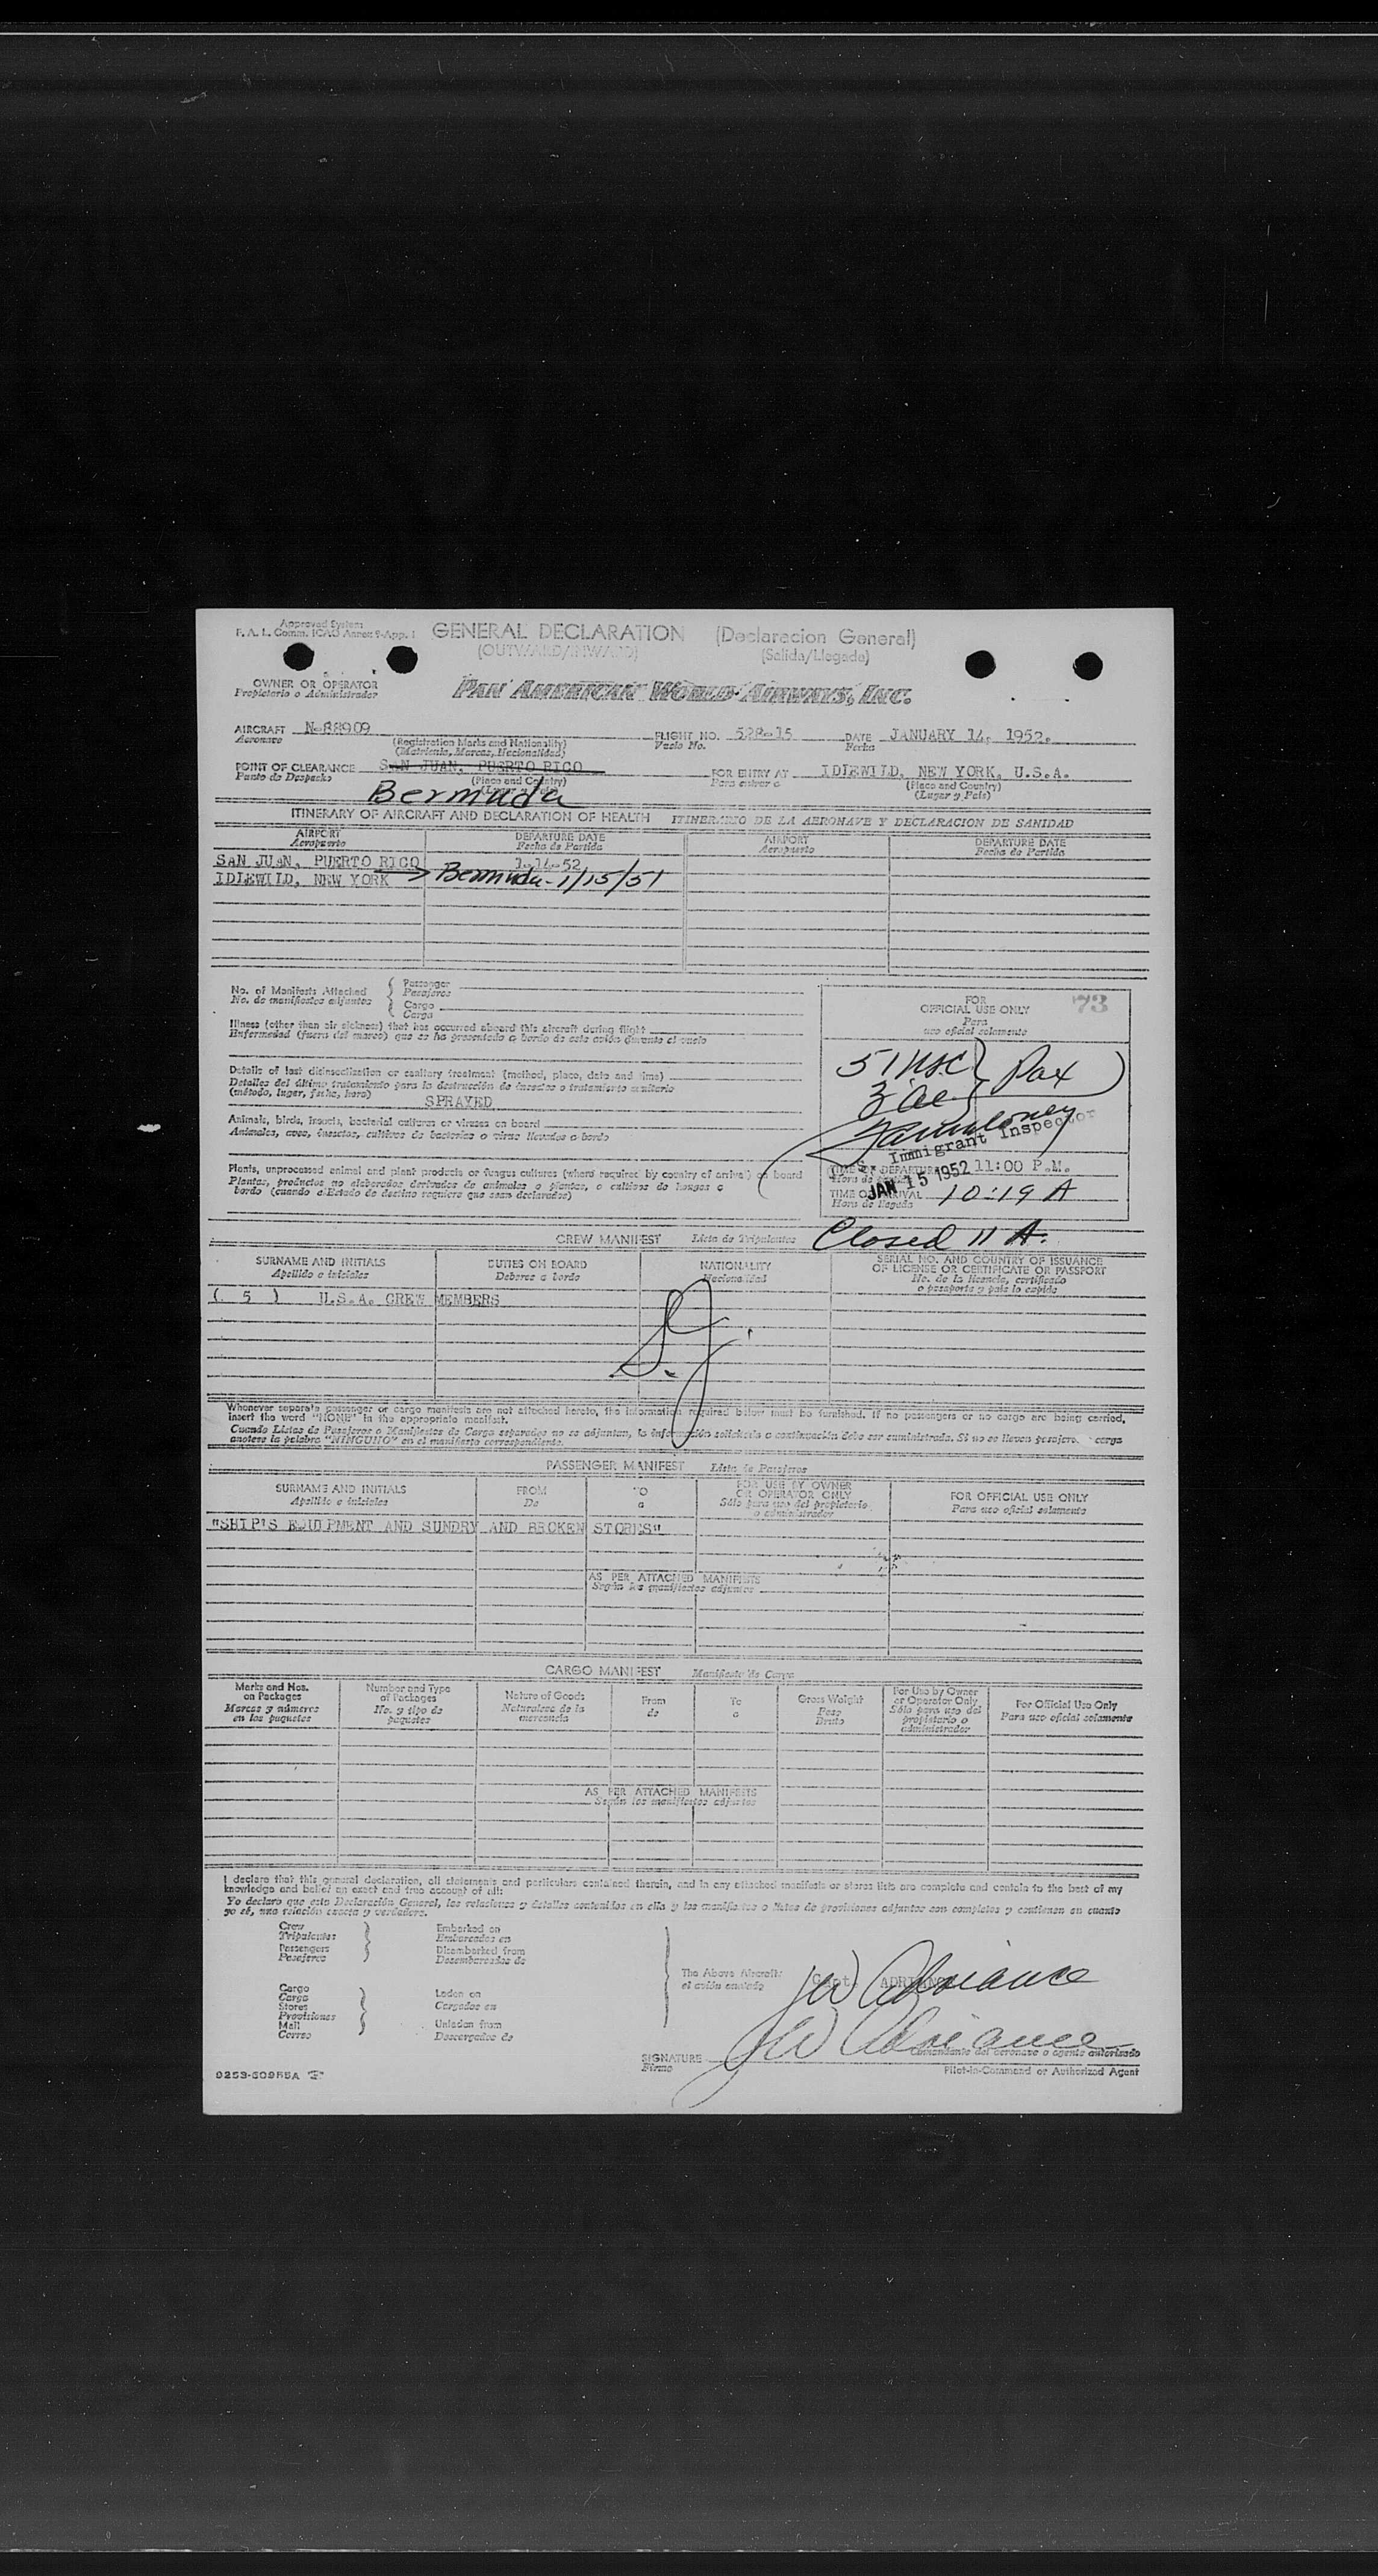 Approved System
F. A. L. Comm. ICAO Annex 9-App. 1
GENERAL DECLARATION (Declaracion General)
(OUTWARD/INWARD) (Salida/Llegada)
OWNER OR OPERATOR
Propietario o Administrador
PAN AMERICAN WORLD AIRWAYS, INC.
AIRCRAFT N-88909 FLIGHT NO. 528-15 DATE JANUARY 14, 1952.
Aeronave (Registration Marks and Nationality) Vuelo No. Fecha
(Matricula, Marcas, Nacionalidad)
POINT OF CLEARANCE SAN JUAN, PUERTO RICO FOR ENTRY AT IDLEWILD, NEW YORK, U.S.A.
Punto de Despacho (Place and Country) Para entrar a (Place and Country)
Bermuda (Lugar y País)
ITINERARY OF AIRCRAFT AND DECLARATION OF HEALTH ITINERARIO DE LA AERONAVE Y DECLARACION DE SANIDAD
AIRPORT DEPARTURE DATE AIRPORT DEPARTURE DATE
Aeropuerto Fecha de Partida Aeropuerto Fecha de Partida
SAN JUAN, PUERTO RICO 1-14-52
IDLEWILD, NEW YORK Bermuda - 1/15/51
No. of Manifests Attached Passenger
No. de manifiestos adjuntos Pasajeros
Cargo
Carga
Illness (other than air sickness) that has occurred aboard this aircraft during flight
Enfermedad (fuera del mareo) que se ha presentado a bordo de este avión durante el vuelo
Details of last disinsectization or sanitary treatment (method, place, date and time)
Detalles del último tratamiento para la destrucción de insectos o tratamiento sanitario
(método, lugar, fecha, hora)
SPRAYED
Animals, birds, insects, bacterial cultures or viruses on board
Animales, aves, insectos, cultivos de bacterias o virus llevados a bordo
Plants, unprocessed animal and plant products or fungus cultures (where required by country of arrival) on board
Plantas, productos no elaborados derivados de animales o plantas, o cultivos de hongos a
bordo (cuando el Estado de destino requiera que sean declarados)
FOR 73
OFFICIAL USE ONLY
Para
uso oficial solamente
51 USC } Pax
3 Ae.
Immigrant Inspector
TIME OF DEPARTURE 11:00 P.M.
Hora de
JAN 15 1952
TIME OF ARRIVAL 10:19 A
Hora de llegada
Closed 11 A.
CREW MANIFEST Lista de Tripulantes
SURNAME AND INITIALS DUTIES ON BOARD NATIONALITY SERIAL NO. AND COUNTRY OF ISSUANCE
OF LICENSE OR CERTIFICATE OR PASSPORT
Apellido e iniciales Deberes a bordo Nacionalidad No. de la licencia, certificado
o pasaporte y país lo expide
( 5 ) U.S.A. CREW MEMBERS
S.J.
Whenever separate passenger or cargo manifests are not attached hereto, the information required below must be furnished. If no passengers or no cargo are being carried,
insert the word "NONE" in the appropriate manifest.
Cuando Listas de Pasajeros o Manifiestos de Carga separados no se adjuntan, la información solicitada a continuación debe ser suministrada. Si no se llevan pasajero carga
anotese la palabra "NINGUNO" en el manifiesto correspondiente.
PASSENGER MANIFEST Lista de Pasajeros
SURNAME AND INITIALS FROM TO FOR USE BY OWNER
OR OPERATOR ONLY FOR OFFICIAL USE ONLY
Apellido e iniciales De a Sólo para uso del propietario
o administrador Para uso oficial solamente
"SHIP'S EQUIPMENT AND SUNDRY AND BROKEN STORES"
AS PER ATTACHED MANIFESTS
Según los manifiestos adjuntos
CARGO MANIFEST Manifiesto de Carga
Marks and Nos.
on Packages
Marcas y números
en los paquetes
Number and Type
of Packages
No. y tipo de
paquetes
Nature of Goods
Naturaleza de la
mercancía
From
de
To
a
Gross Weight
Peso
Bruto
For Use by Owner
or Operator Only
Sólo para uso del
propietario o
administrador
For Official Use Only
Para uso oficial solamente
AS PER ATTACHED MANIFESTS
Según los manifiestos adjuntos
I declare that this general declaration, all statements and particulars contained therein, and in any attached manifests or stores lists are complete and contain to the best of my
knowledge and belief an exact and true account of all:
Yo declaro que esta Declaración General, las relaciones y detalles contenidos en ella y los manifiestos o listas de provisiones adjuntos son completos y contienen en cuanto
yo sé, una relación exacta y verdadera.
Crew
Tripulantes
Passengers
Pasajeros
Embarked on
Embarcados en
Disembarked from
Desembarcados de
Cargo
Carga
Stores
Provisiones
Mail
Correo
Laden on
Cargados en
Unladen from
Descargados de
The Above Aircraft:
el avión anotado
Capt. ADRIANCE
JW Adriance
JW Adriance
SIGNATURE
Firma
Comandante del aeronave o agente autorizado
Pilot-in-Command or Authorized Agent
0253-50955A